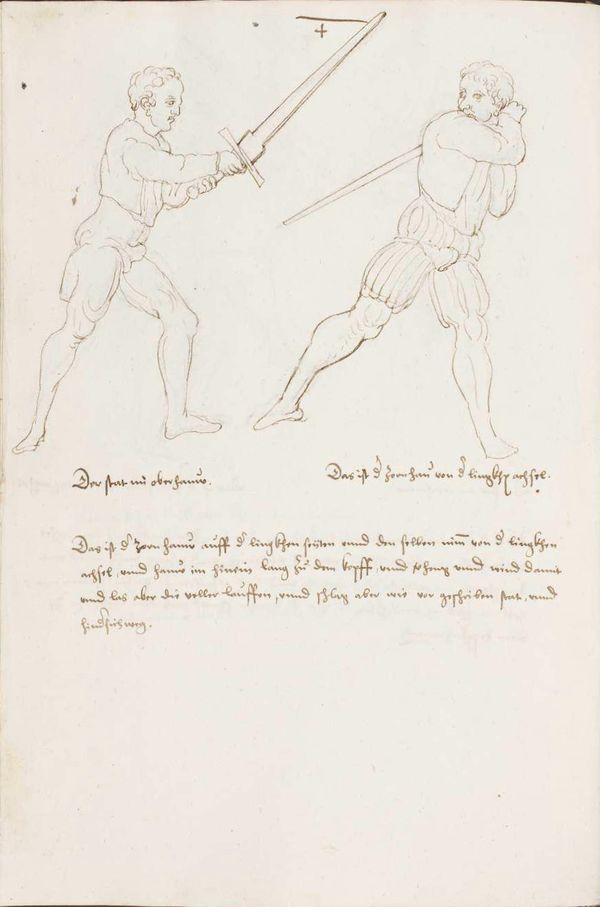 4
Der stat im oberhauw.
Das ist d zornhau von d lingkhen achsel.
Das ist d zornhauw auff d lingkhen seyten vnnd den selben nim von d lingkhen
achsel, vnnd hauw im hinein lang zu dem kopff, vnd vnnd wind damit
vnnd las aber die veller lauffen, vnnd schlag aber wie vor geschriben stat, vnnd
hindersich weg.